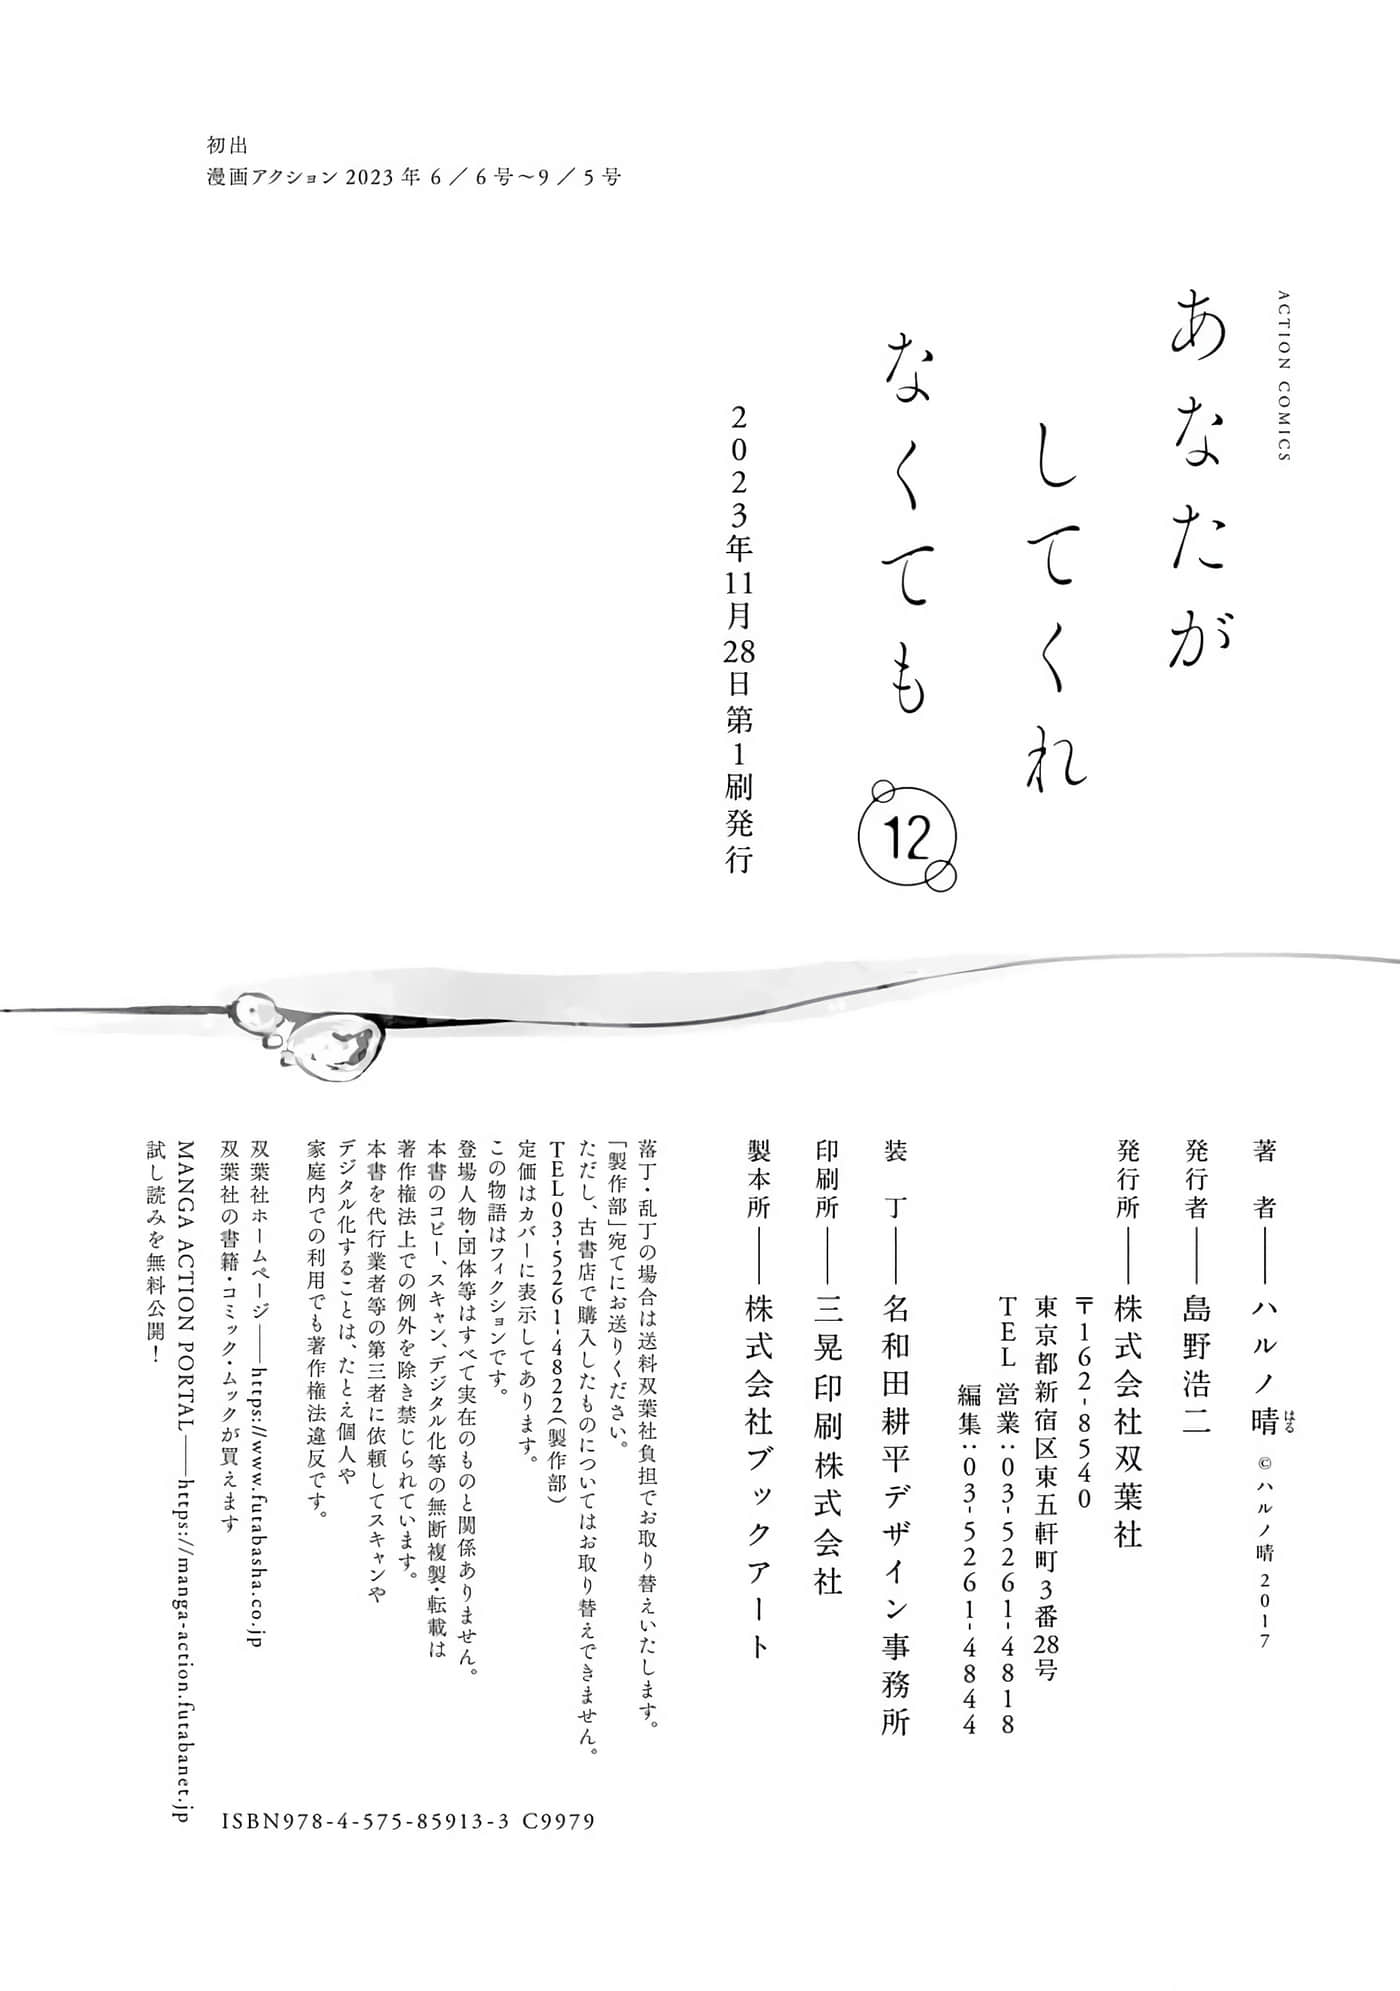 初出
漫画アクション 2023 年 6 ／ 6 号〜9 ／ 5 号
ACTION COMICS
あなたが
してくれ
なくても
12
2023年11月28日第1刷発行
著　者――ハルノ晴 ©ハルノ晴 2017
はる
発行者――島野浩二
発行所――株式会社双葉社
〒162-8540
東京都新宿区東五軒町3番28号
TEL 営業：03-5261-4818
編集：03-5261-4844
装　丁――名和田耕平デザイン事務所
印刷所――三晃印刷株式会社
製本所――株式会社ブックアート
落丁・乱丁の場合は送料双葉社負担でお取り替えいたします。
「製作部」宛てにお送りください。
ただし、古書店で購入したものについてはお取り替えできません。
TEL03-5261-4822（製作部）
定価はカバーに表示してあります。
この物語はフィクションです。
登場人物・団体等はすべて実在のものと関係ありません。
本書のコピー、スキャン、デジタル化等の無断複製・転載は
著作権法上での例外を除き禁じられています。
本書を代行業者等の第三者に依頼してスキャンや
デジタル化することは、たとえ個人や
家庭内での利用でも著作権法違反です。
双葉社ホームページ――https://www.futabasha.co.jp
双葉社の書籍・コミック・ムックが買えます
MANGA ACTION PORTAL――https://manga-action.futabanet.jp
試し読みを無料公開！
ISBN978-4-575-85913-3 C9979